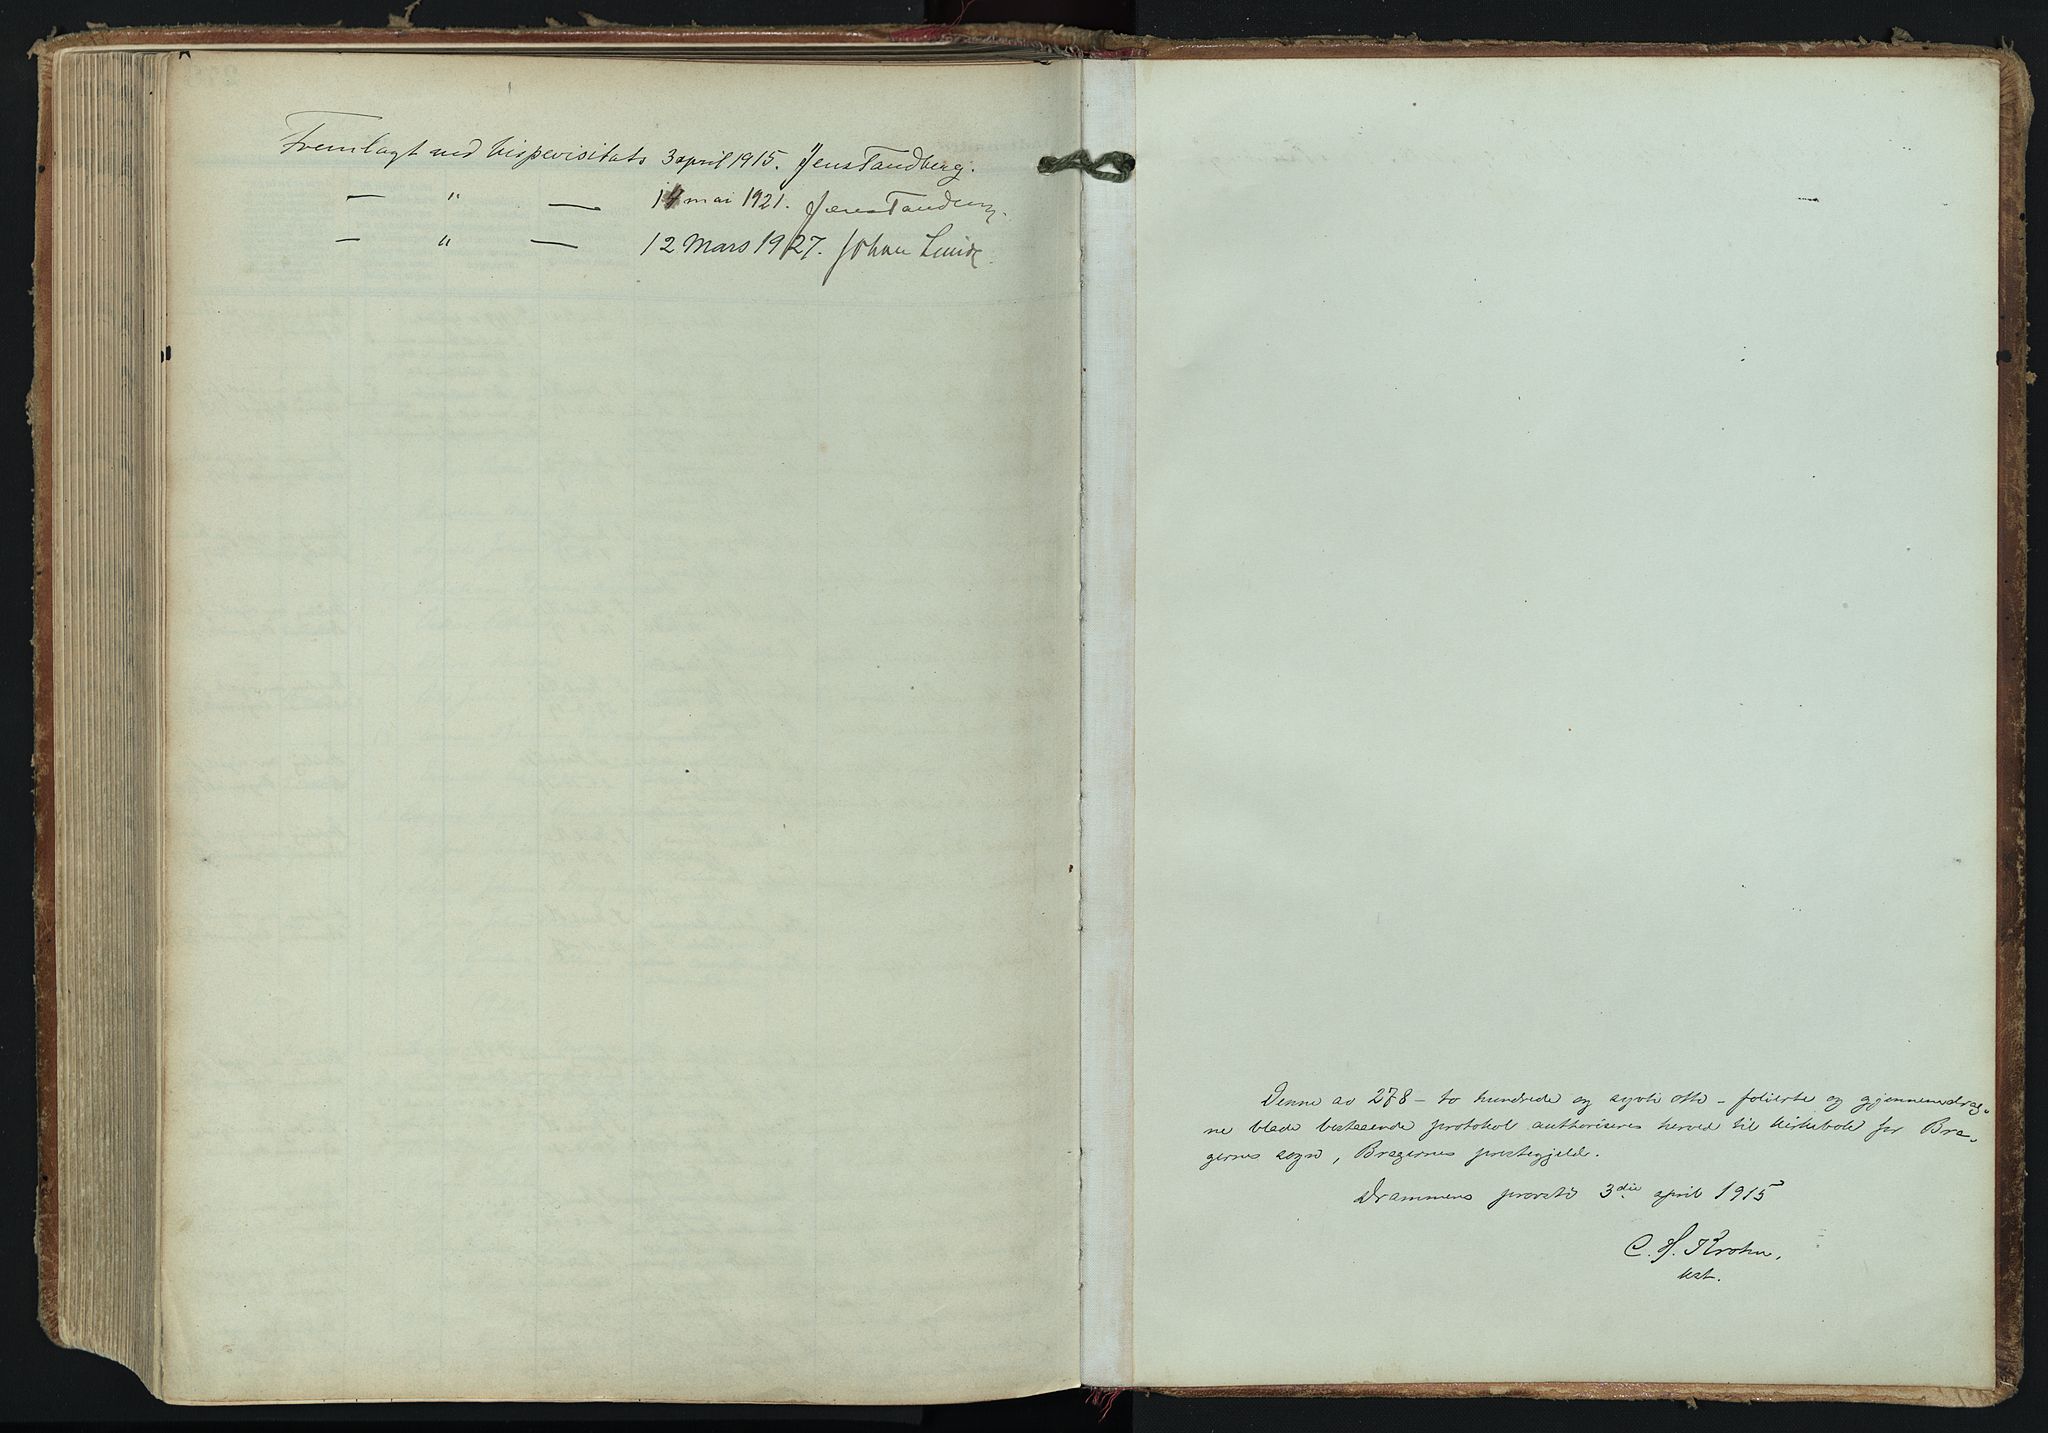 Fremlagt ved bispevisitats 3 april 1915. Jens Tandberg.
— " — 14 mai 1921. Jens Tandberg.
— " — 12 Mars 1927. Johan Lunde.
Denne av 278 – to hundrede og sytti otte – folierte og gjennemdrag-
ne blade bestaaende protokol authoriseres herved til kirkebok for Bra-
gernes sogn, Bragernes prestegjeld.
Drammens prosti 3die april 1915
C. H. Krohn,
kst.